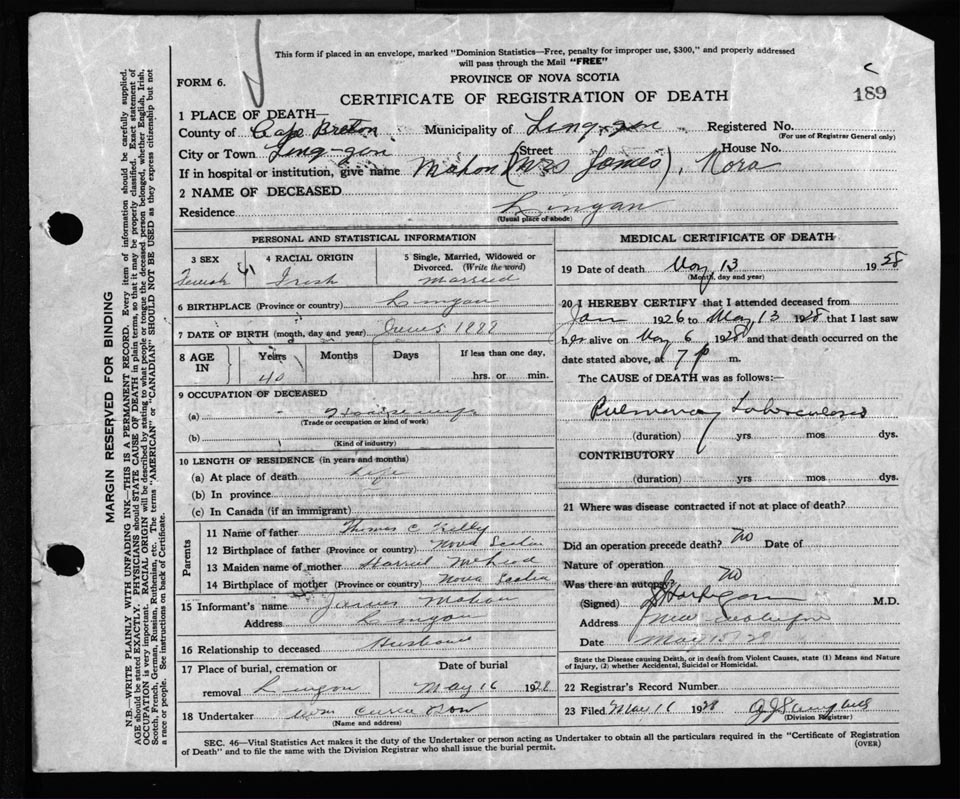 This form if placed in an envelope, marked "Dominion Statistics—Free, penalty for improper use, $300," and properly addressed
will pass through the Mail "FREE"
FORM 6.
PROVINCE OF NOVA SCOTIA
CERTIFICATE OF REGISTRATION OF DEATH
189
1 PLACE OF DEATH—
County of Cape Breton Municipality of Registered No.
(For use of Registrar General only)
City or Town Street House No.
If in hospital or institution, give name Mahon (Mrs James), Nora
2 NAME OF DECEASED
Residence Lingan
(Usual place of abode)
PERSONAL AND STATISTICAL INFORMATION
3 SEX 4 RACIAL ORIGIN 5 Single, Married, Widowed or Divorced. (Write the word)
Female Irish Married
6 BIRTHPLACE (Province or country) Lingan
7 DATE OF BIRTH (month, day and year) 1888
8 AGE IN Years Months Days If less than one day,
40 hrs. or min.
9 OCCUPATION OF DECEASED
(a) Housewife
(Trade or occupation or kind of work)
(b)
(Kind of industry)
10 LENGTH OF RESIDENCE (in years and months)
(a) At place of death life
(b) In province
(c) In Canada (if an immigrant)
Parents
11 Name of father Thomas C Kelly
12 Birthplace of father (Province or country) Nova Scotia
13 Maiden name of mother McLeod
14 Birthplace of mother (Province or country) Nova Scotia
15 Informant's name James Mahon
Address Lingan
16 Relationship to deceased Husband
17 Place of burial, cremation or removal Lingan
Date of burial
May 16 1928
18 Undertaker Wm & Son
(Name and address)
MEDICAL CERTIFICATE OF DEATH
19 Date of death May 13 1928
(Month, day and year)
20 I HEREBY CERTIFY that I attended deceased from
Jan 1926 to May 13 1928 that I last saw
her alive on May 6 1928 and that death occurred on the
date stated above, at 7 p m.
The CAUSE of DEATH was as follows:—
Pulmonary Tuberculosis
(duration) yrs mos dys.
CONTRIBUTORY
(duration) yrs mos dys.
21 Where was disease contracted if not at place of death?
Did an operation precede death? No Date of
Nature of operation
Was there an autopsy? No
(Signed) Hartigan M.D.
Address New Waterford
Date May 15/28
State the Disease causing Death, or in death from Violent Causes, state (1) Means and Nature
of Injury, (2) whether Accidental, Suicidal or Homicidal.
22 Registrar's Record Number
23 Filed May 1928
(Division Registrar)
SEC. 46—Vital Statistics Act makes it the duty of the Undertaker or person acting as Undertaker to obtain all the particulars required in the "Certificate of Registration
of Death" and to file the same with the Division Registrar who shall issue the burial permit.
(OVER)
MARGIN RESERVED FOR BINDING
N.B.—WRITE PLAINLY WITH UNFADING INK—THIS IS A PERMANENT RECORD. Every item of information should be carefully supplied.
AGE should be stated EXACTLY. PHYSICIANS should STATE CAUSE OF DEATH in plain terms, so that it may be properly classified. Exact statement of
OCCUPATION is very important. RACIAL ORIGIN will be described by stating to what people or tongue the deceased person belonged, whether English, Irish,
Scotch, French, German, Russian, Ruthenian, etc. The terms "AMERICAN" or "CANADIAN" SHOULD NOT BE USED as they express citizenship but not
a race or people. See instructions on back of Certificate.